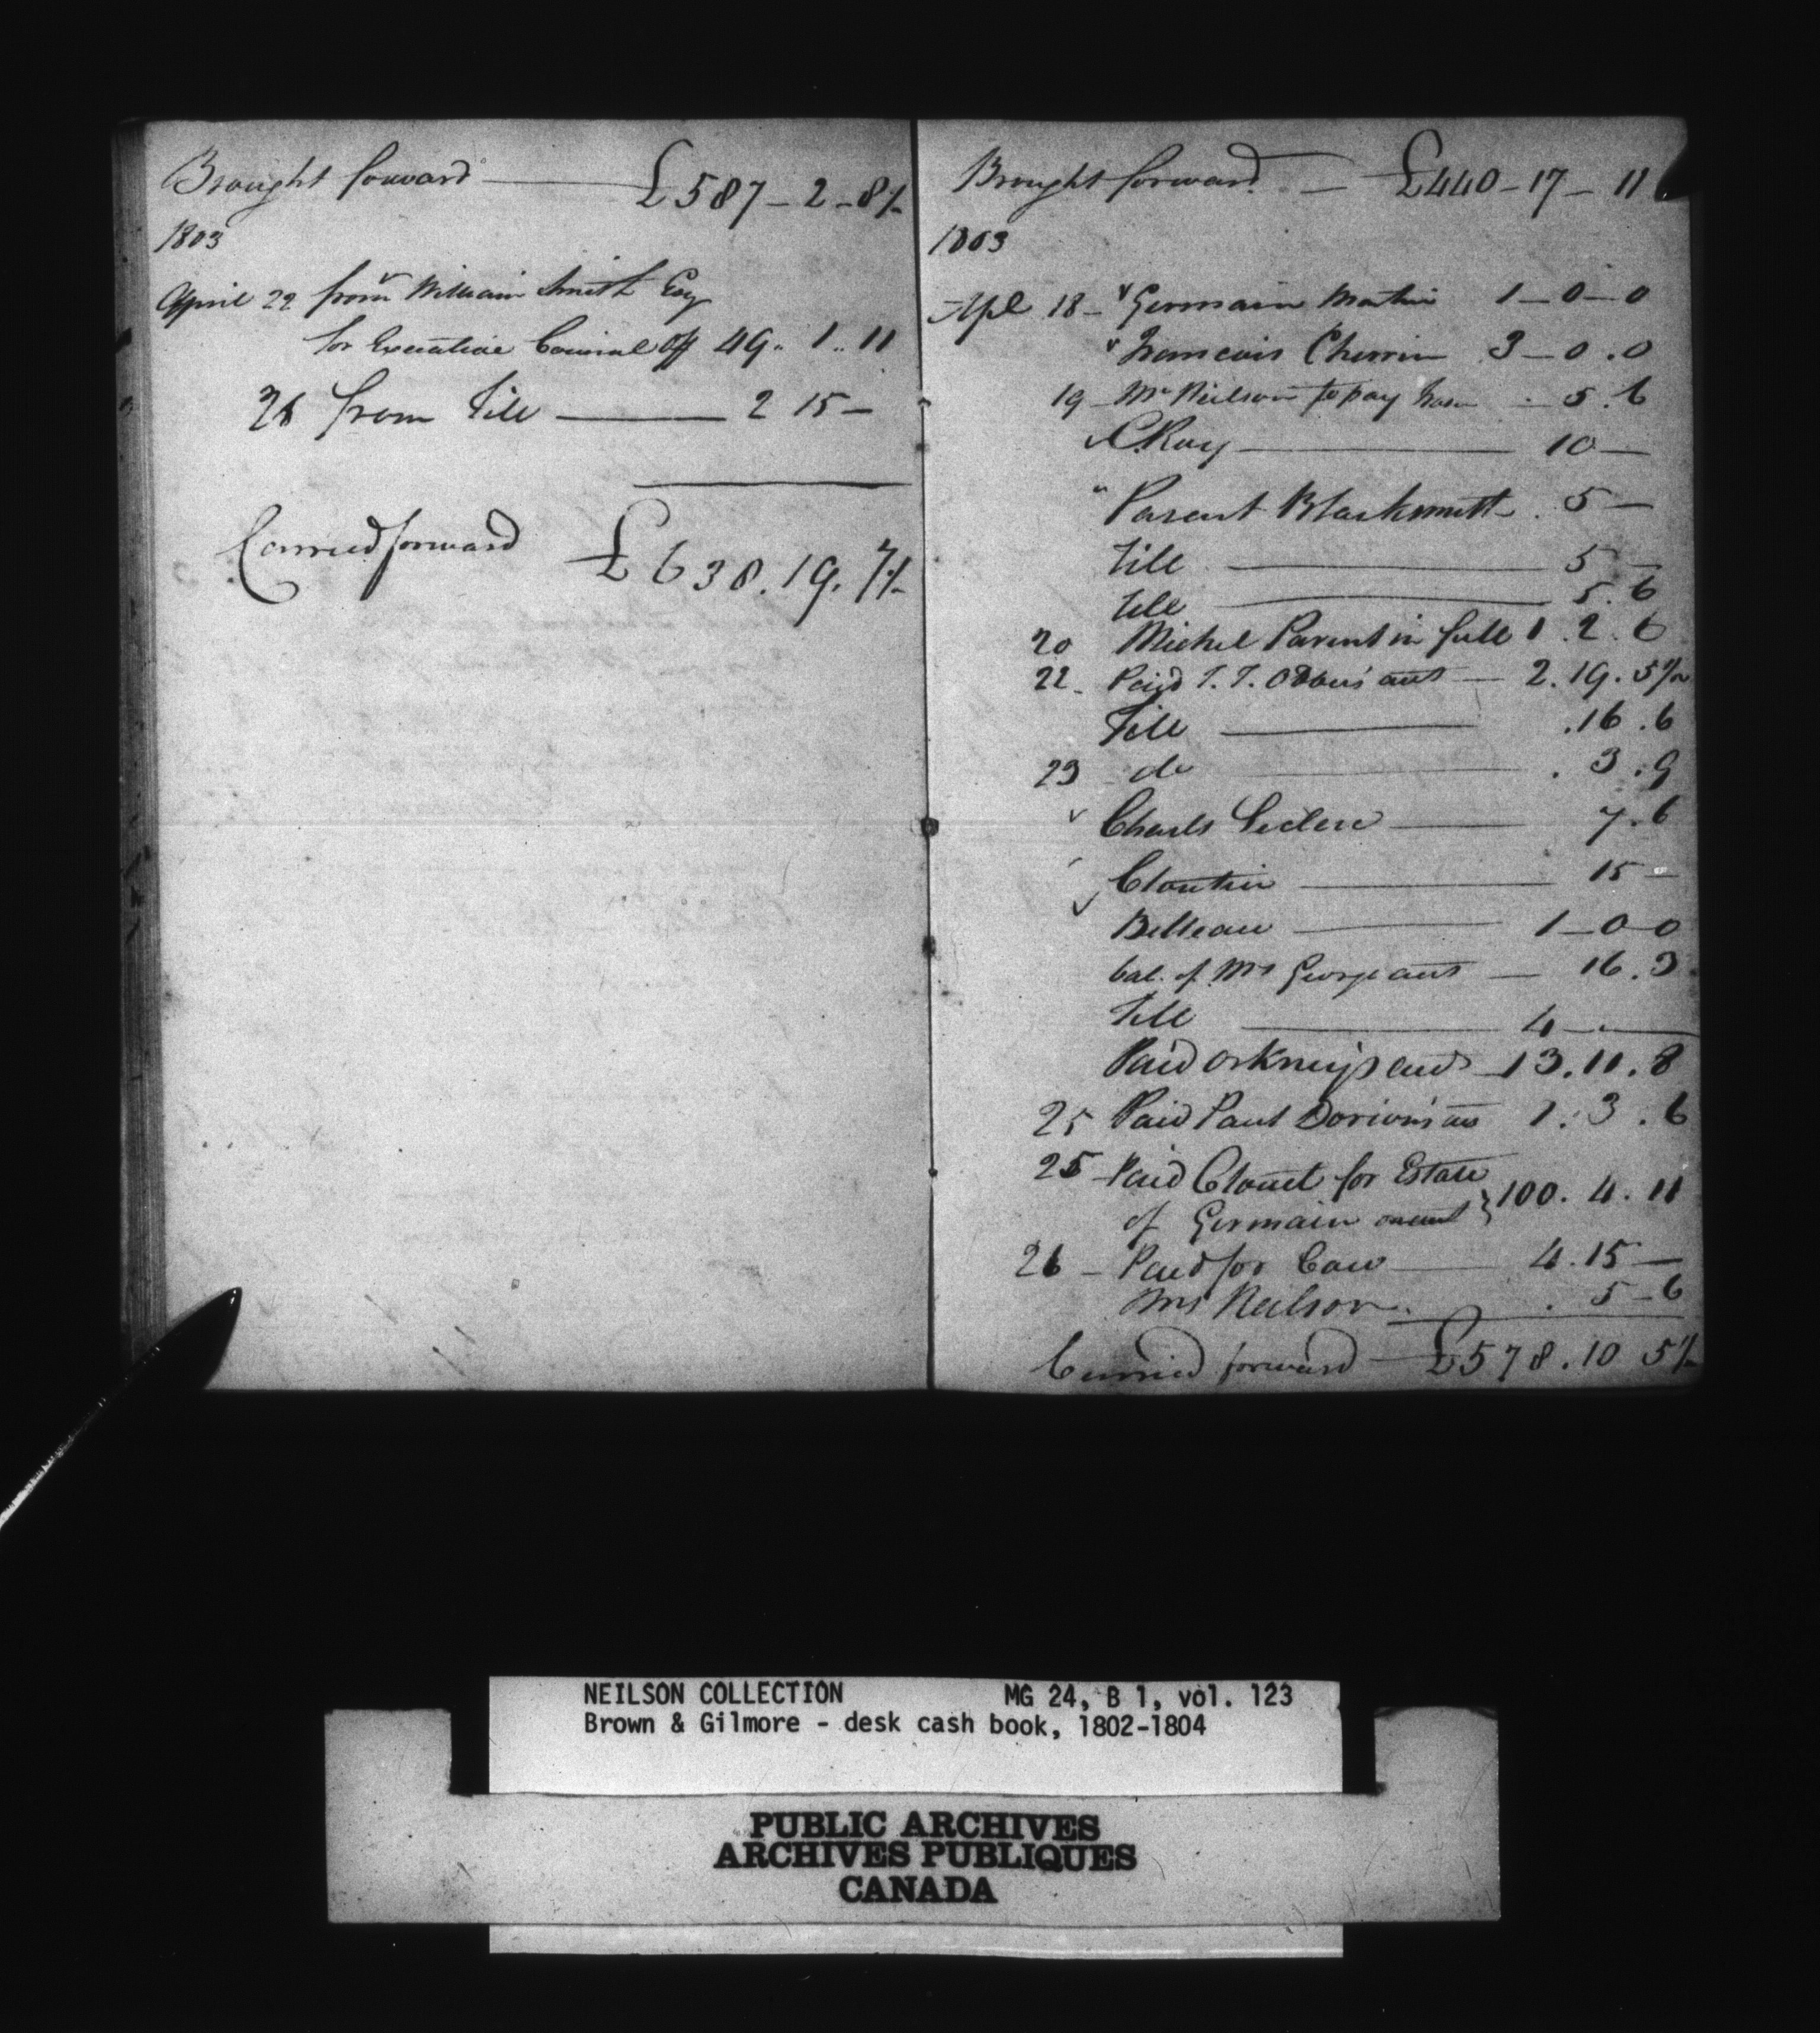 Brought forward — £587 - 2 - 8½
1803
April 22 from William Smith Esq
for Executive Council Off 49 .. 1 .. 11
26 from Till — 2 15 —
Carried forward £638 . 19 . 7½
Brought forward — £440 - 17 - 11
1803
Apl 18 - Germain Martin 1 - 0 - 0
Francois Cherrier 3 - 0 . 0
19 - Mr Neilson to pay - 5 . 6
C. Roy — 10 —
" Parent Blacksmith . 5 —
Till — 5 —
till — 5 . 6
20 Michel Parent in full 1 . 2 . 6
22 - Paid T. T. — 2 . 19 . 5½
Till — . 16 . 6
23 do — . 3 . 9
Charls Leclerc — 7 . 6
Cloutier — 15 —
Belleau — 1 - 0 - 0
bal. of Mrs George acct — 16 . 3
Till — 4 - . —
Paid Orkney's acct - 13 . 11 . 8
25 Paid Paul Dorion's acct 1 . 3 . 6
25 - Paid Clouet for Estate
of Germain } 100 . 4 . 11
26 - Paid for Cow — 4 . 15 —
Mrs Neilson . . 5 - 6
Carried forward — £578 . 10 5½
NEILSON COLLECTION MG 24, B 1, vol. 123
Brown & Gilmore - desk cash book, 1802-1804
PUBLIC ARCHIVES
ARCHIVES PUBLIQUES
CANADA